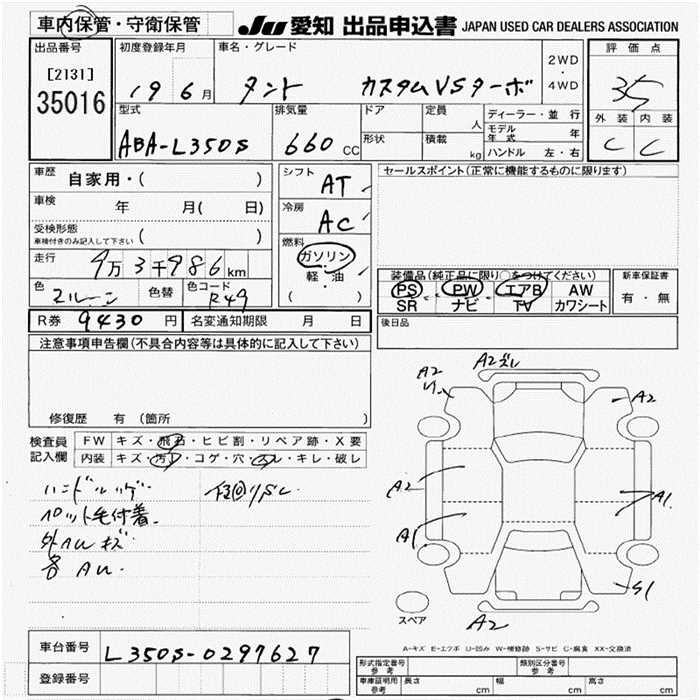 車内保管・守衛保管
JU 愛知 出品申込書 JAPAN USED CAR DEALERS ASSOCIATION
出品番号
[2131]
35016
初度登録年月
19 6月
車名・グレード
タント カスタムVSターボ
2WD
・
4WD
評価点
3.5
外装 内装
C C
型式
ABA-L350S
排気量
660 CC
ドア
形状
定員
人
積載
kg
ディーラー・並行
モデル年式 年
ハンドル 左・右
車歴
自家用・( )
車検
年 月( 日)
受検形態
車検付きのみ記入して下さい ( )
走行
9万3千986km
色
色替
色コード
R49
シフト
AT
冷房
AC
燃料
ガソリン
・
軽・油
( )
セールスポイント(正常に機能するものに限ります)
装備品(純正品に限り○をつけてください)
PS PW エアB AW
SR ナビ TV カワシート
新車保証書
有・無
R券 9430円 名変通知期限 月 日
後日品
注意事項申告欄(不具合内容等は具体的に記入して下さい)
修復歴 有(箇所 )
検査員
記入欄
FW キズ・飛石・ヒビ割・リペア跡・X要
内装 キズ・汚レ・コゲ・穴・スレ・キレ・破レ
ハンドルハゲ
ペット毛付着
外AUキズ
各AU
A2ズレ
A2
A2
A2
A1
A1
S1
A2
スペア
A-キズ E-エクボ U-凹み W-補修跡 S-サビ C-腐食 XX-交換済
車台番号
L350S-0297627
登録番号
形式指定番号
参考
類別区分番号
参考
車庫証明用
参考
長さ cm 幅 cm 高さ cm